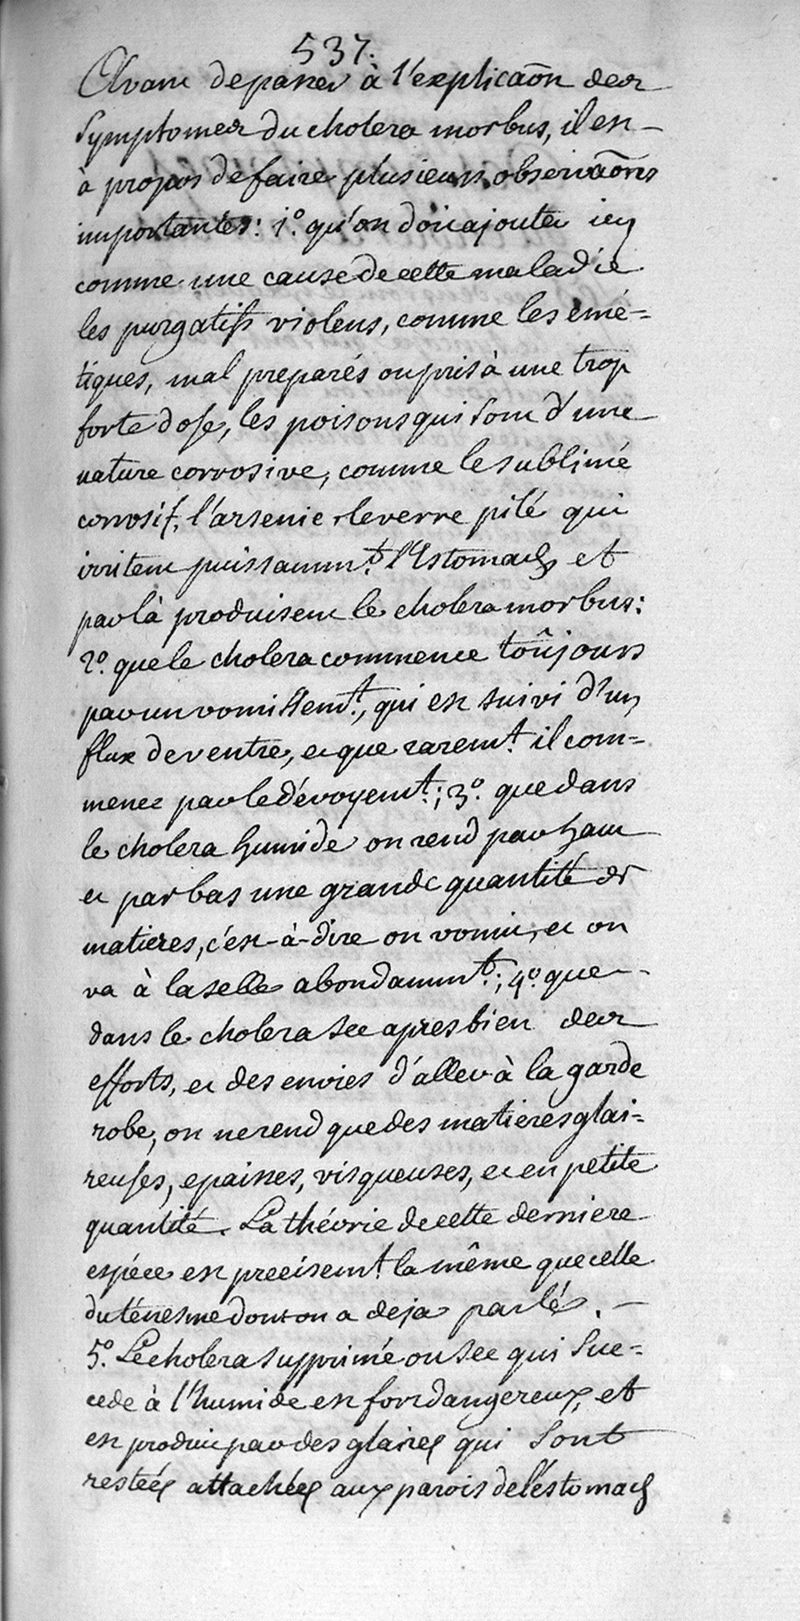 537.
Avant de passer à l'explicaõn des
Symptomes du cholera morbus, il est
à propos de faire plusieurs observaõns
importantes: 1.º qu'on doit ajouter icy
comme une cause de cette maladie
les purgatifs violens, comme les émé=
tiques, mal preparés ou pris à une trop
forte dose, les poisons qui sont d'une
nature corrosive, comme le sublimé
corrosif, l'arsenic, le verre pilé qui
irritent puissamm.t l'Estomach et
par là produisent le cholera morbus:
2.º que le cholera commence toûjours
par un vomissem.t, qui est suivi d'un
flux de ventre, et que rarem.t il com=
mence par le dévoyem.t; 3.º que dans
le cholera humide on rend par haut
et par bas une grande quantité de
matieres, c'est-à-dire on vomit, et on
va à la selle abondamm.t; 4.º que
dans le cholera sec apres bien des
efforts, et des envies d'aller à la garde
robe, on ne rend que des matieres glai=
reuses, epaisses, visqueuses, et en petite
quantité. La théorie de cette derniere
espéce est precisem.t la même que celle
du ténesme dont on a deja parlé.
5.º Le cholera supprimé ou sec qui suc=
cede à l'humide est fort dangereux, et
est produit par des glaires qui sont
restées attachées aux parois de l'éstomach